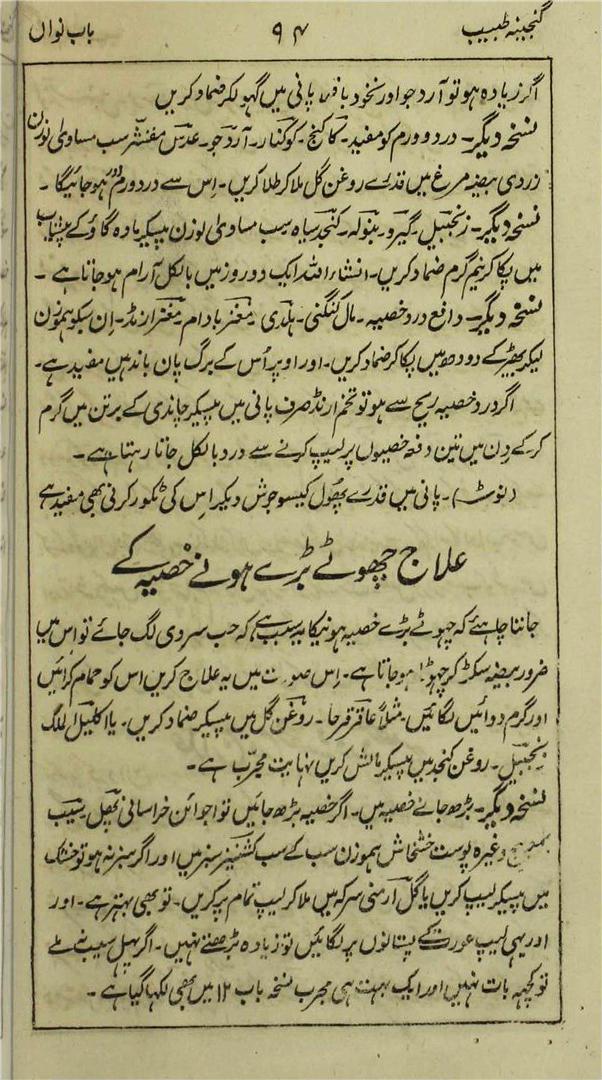 گنجینہ طبیب ۹۴ باب نواں
اگر زیادہ ہو تو آرد جو اور نخود باقلا پانی میں گہولکر ضماد کریں
نسخہ دیگر۔ درد و ورم کو مفید۔ کاکنج۔ کوکنار۔ آرد جو۔ عدس مقشر سب مساوی الوزن
زردی بیضہ مرغ میں قدرے روغن گل ملاکر طلا کریں۔ اس سے درد ورم دور ہو جائیگا۔
نسخہ دیگر۔ زنجبیل۔ گیرو۔ بنولہ۔ کنجد سیاہ سب مساوی لوزن پیسکر مادہ گاؤ کے پیشاب
میں پکا کر نیم گرم ضماد کریں۔ انشاء اللہ ایک دو روز میں بالکل آرام ہو جاتا ہے۔
نسخہ دیگر۔ دافع درد خصیہ۔ مال کنگنی۔ ہلدی مغز بادام۔ مغز ارنڈ۔ ان سبکو ہموزن
لیکر بھیڑ کے دودھ میں پکا کر ضماد کریں۔ اور اوپر اُس کے برگ پان باندہیں مفید ہے۔
اگر درد خصیہ ریح سے ہو تو تخم ارنڈ صرف پانی میں پیسکر چاندی کے برتن میں گرم
کر کے دن میں تین دفعہ خصیوں پر لیپ کرنے سے درد بالکل جاتا رہتا ہے۔
(نوٹ)۔ پانی میں قدرے پھول کیسو جوش دیکر اس کی ٹکور کرنی بھی مفید ہے
علاج چھوٹے بڑے ہونے خصیہ کے
جاننا چاہئے کہ چہوٹے بڑے خصیہ ہونیکا یہ سبب ہے کہ جب سردی لگ جائے تو اس میں
ضرور بیضہ سکڑ کر چہوٹا ہو جاتا ہے۔ اس صورت میں یہ علاج کریں اس کو حمام کرائیں
اور گرم دوائیں لگائیں۔ مثلاً عاقرقرحا۔ روغن گل میں پیسکر ضماد کریں۔ یا اکلیل الملک
زنجبیل۔ روغن کنجد میں پیسکر مالش کریں نہایت مجرّب ہے۔
نسخہ دیگر۔ بڑھ جانے خصیہ میں۔ اگر خصیہ بڑھ جائیں تو اجوائن خراسانی پھل سیب
وغیرہ پوست خشخاش ہموزن سب کے سب کشنیز سبز میں اور اگر سبز نہ ہو تو خشک
میں پیسکر لیپ کریں یا گل ارمنی سرکہ میں ملا کر لیپ تمام پر کریں۔ تو بھی بہتر ہے۔ اور
اور یہی لیپ عورت کے پستانوں پر لگائیں تو زیادہ بڑھتے نہیں۔ اگر پہل سیب نہ ملے
تو کچہہ بات نہیں اور ایک بہت ہی مجرب نسخہ باب ۱۲ میں بھی لکہا گیا ہے۔